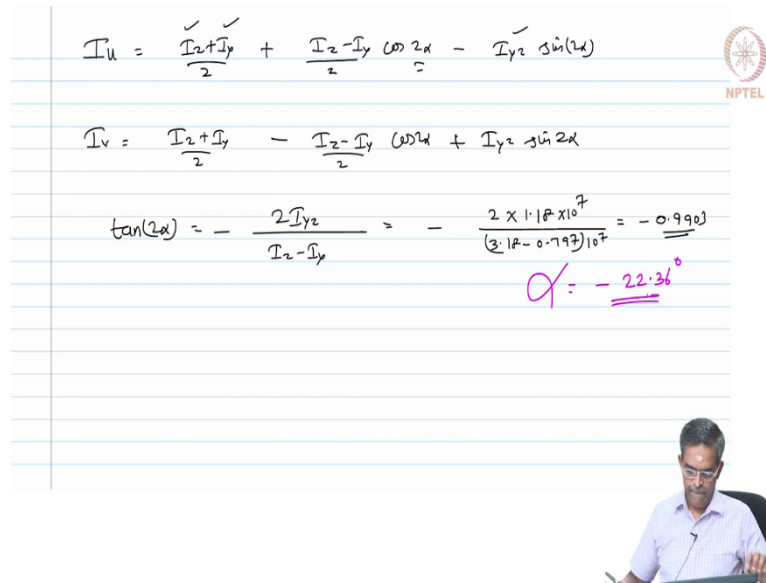 Iu = Iz+Iy/2 + Iz-Iy/2 cos 2α - Iyz sin(2α)
NPTEL
Iv = Iz+Iy/2 - Iz-Iy/2 cos2α + Iyz sin 2α
tan(2α) = - 2Iyz/Iz-Iy = - 2 x 1.18 x10^7/(3.18-0.797)10^7 = - 0.9903
α = - 22.36°